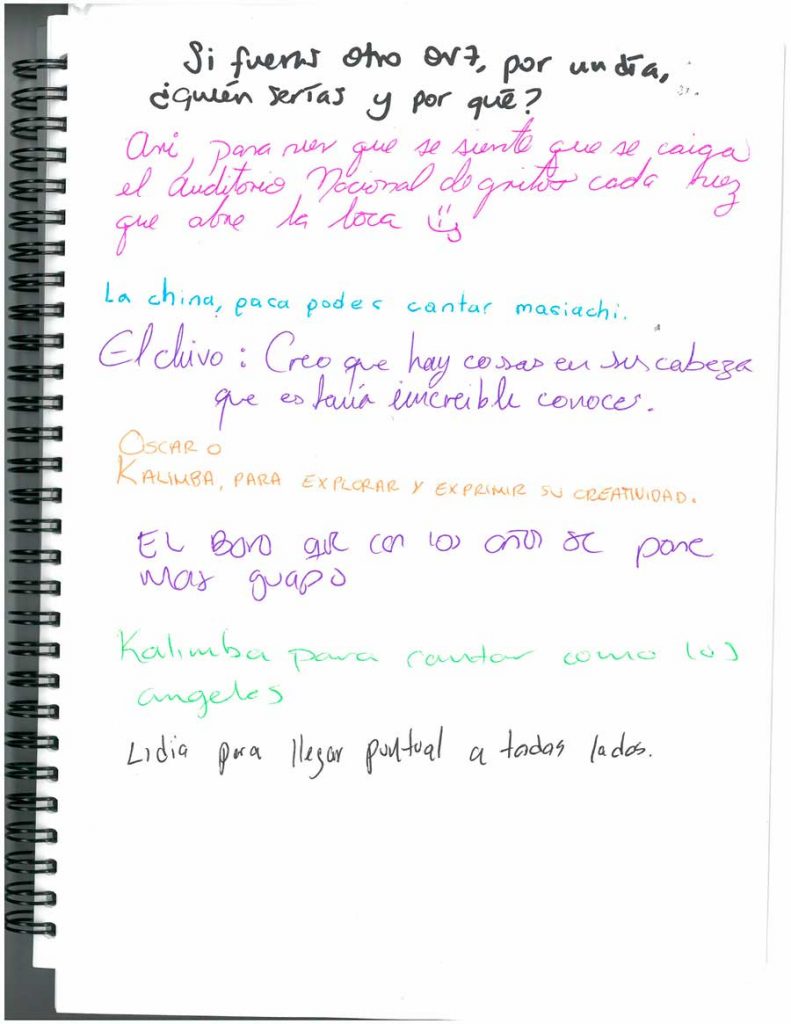 Si fueras otro OV7, por un día,
¿quién serías y por qué?
Ari, para ver que se siente que se caiga
el Auditorio Nacional de gritos cada vez
que abre la boca
La china, para poder cantar mariachi.
El chivo: Creo que hay cosas en su cabeza
que estaría increible conocer.
OSCAR O
KALIMBA, PARA EXPLORAR Y EXPRIMIR SU CREATIVIDAD.
EL BORO que con los años se pone
mas guapo
Kalimba para cantar como los
angeles
Lidia para llegar puntual a todos lados.